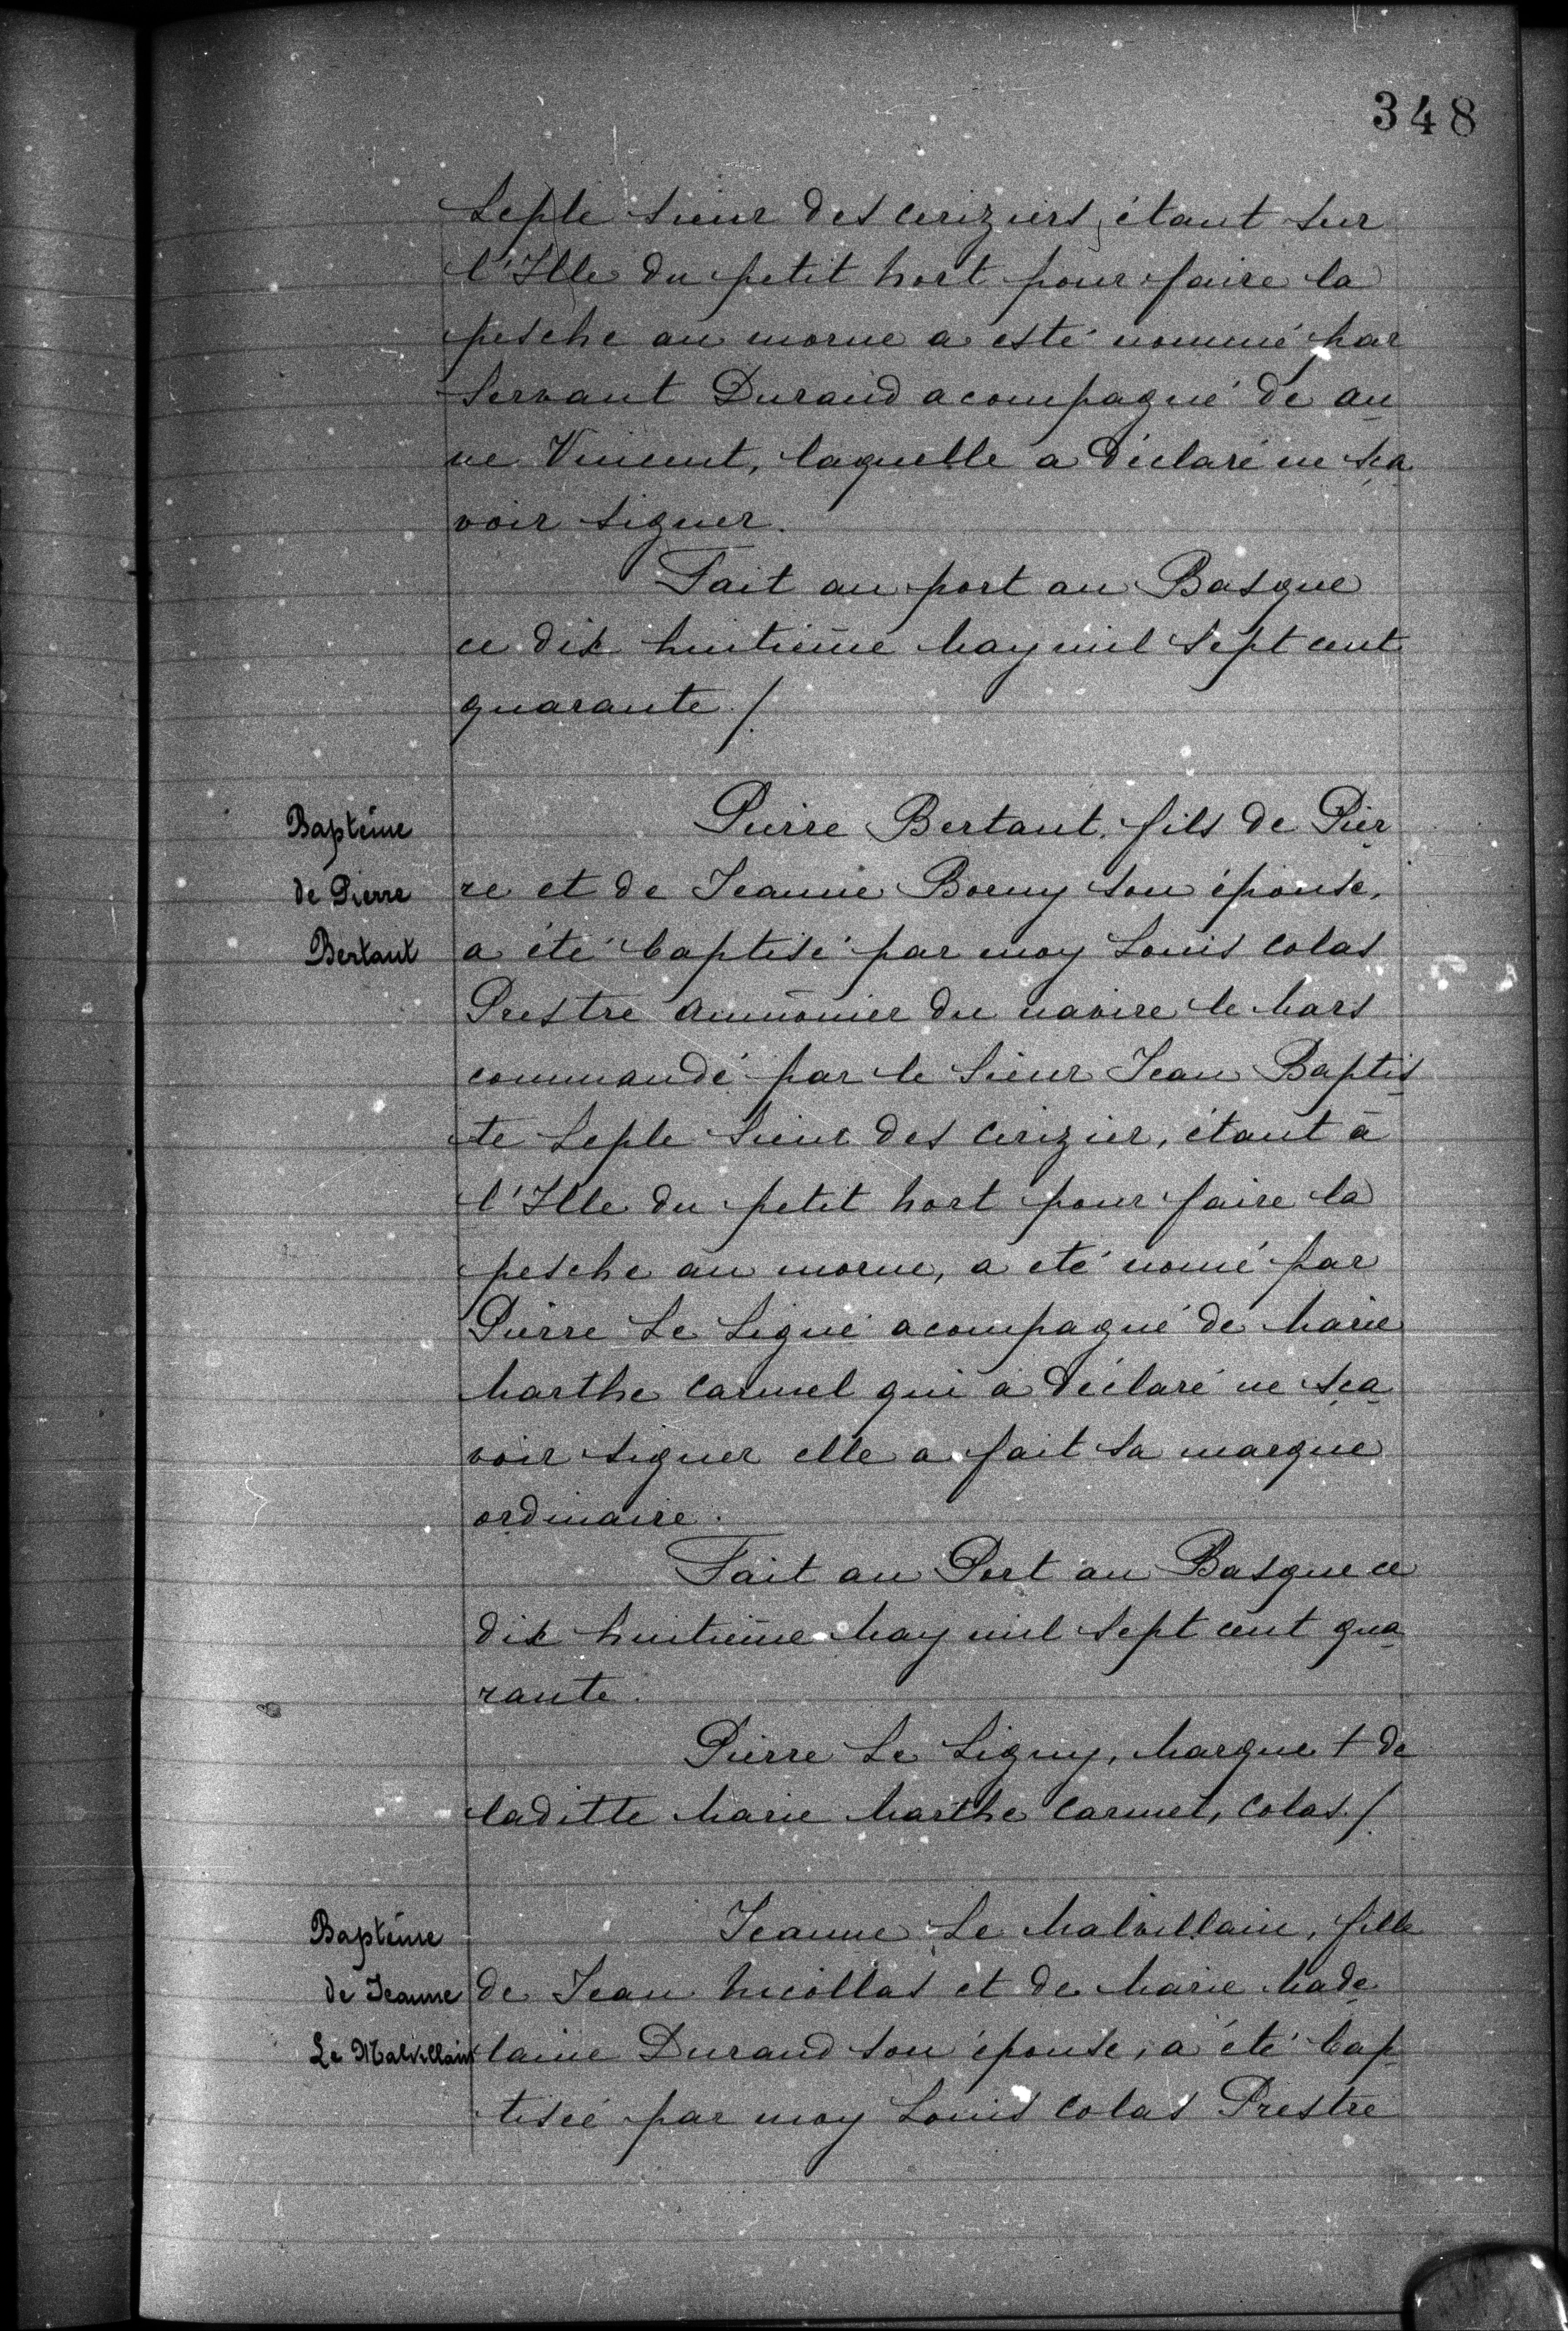 348
Leple sieur des ceriziers, étant sur
l'Ille du petit nort pour faire la
pesche au morue a esté nommé par
Servant Durand acompagné de an
ne Vincent, laquelle a déclaré ne sça
voir signer.
Fait au port au Basque
ce dix huitième May mil sept cent
quarante ./.
Baptême
de Pierre
Bertaut
Pierre Bertaut, fils de Pier
re et de Jeanne Boeny son épouse,
a été baptisé par moy Louis Colas
Prestre aumônier du navire le Mars
commandé par le Sieur Jean Baptis
te Leple sieur des Cerizier, étant à
l'Ille du petit nort pour faire la
pesche au morue, a eté nomé par
Pierre Le Ligné acompagné de Marie
Marthe Carmel qui a déclaré ne sça
voir signer elle a fait sa marque
ordinaire.
Fait au Port au Basque ce
dix huitième May mil sept cent qua
rante.
Pierre Le Ligny, Marque + de
laditte Marie Marthe Carmel, Colas ./.
Baptême
de Jeanne
Le Malvillain
Jeanne Le Malvillain, fille
de Jean Nicollas et de Marie Made
laine Durand son épouse, a été bap
tisée par moy Louis Colas Prestre